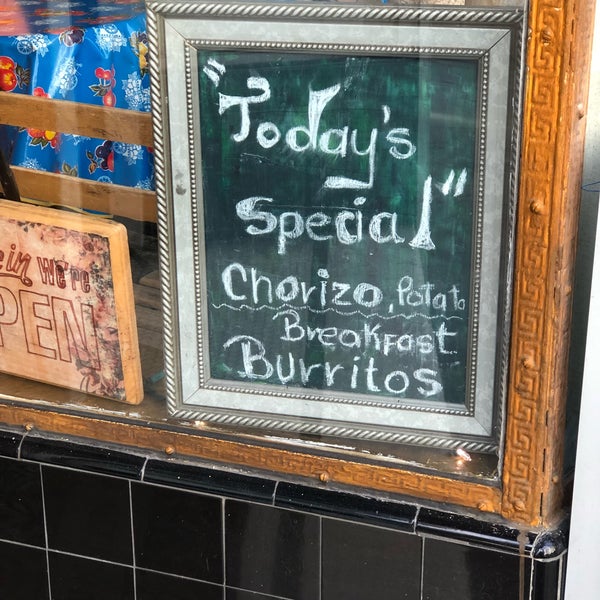 "Today's
Special"
Chorizo, Potato
Breakfast
Burritos
in We're
PEN